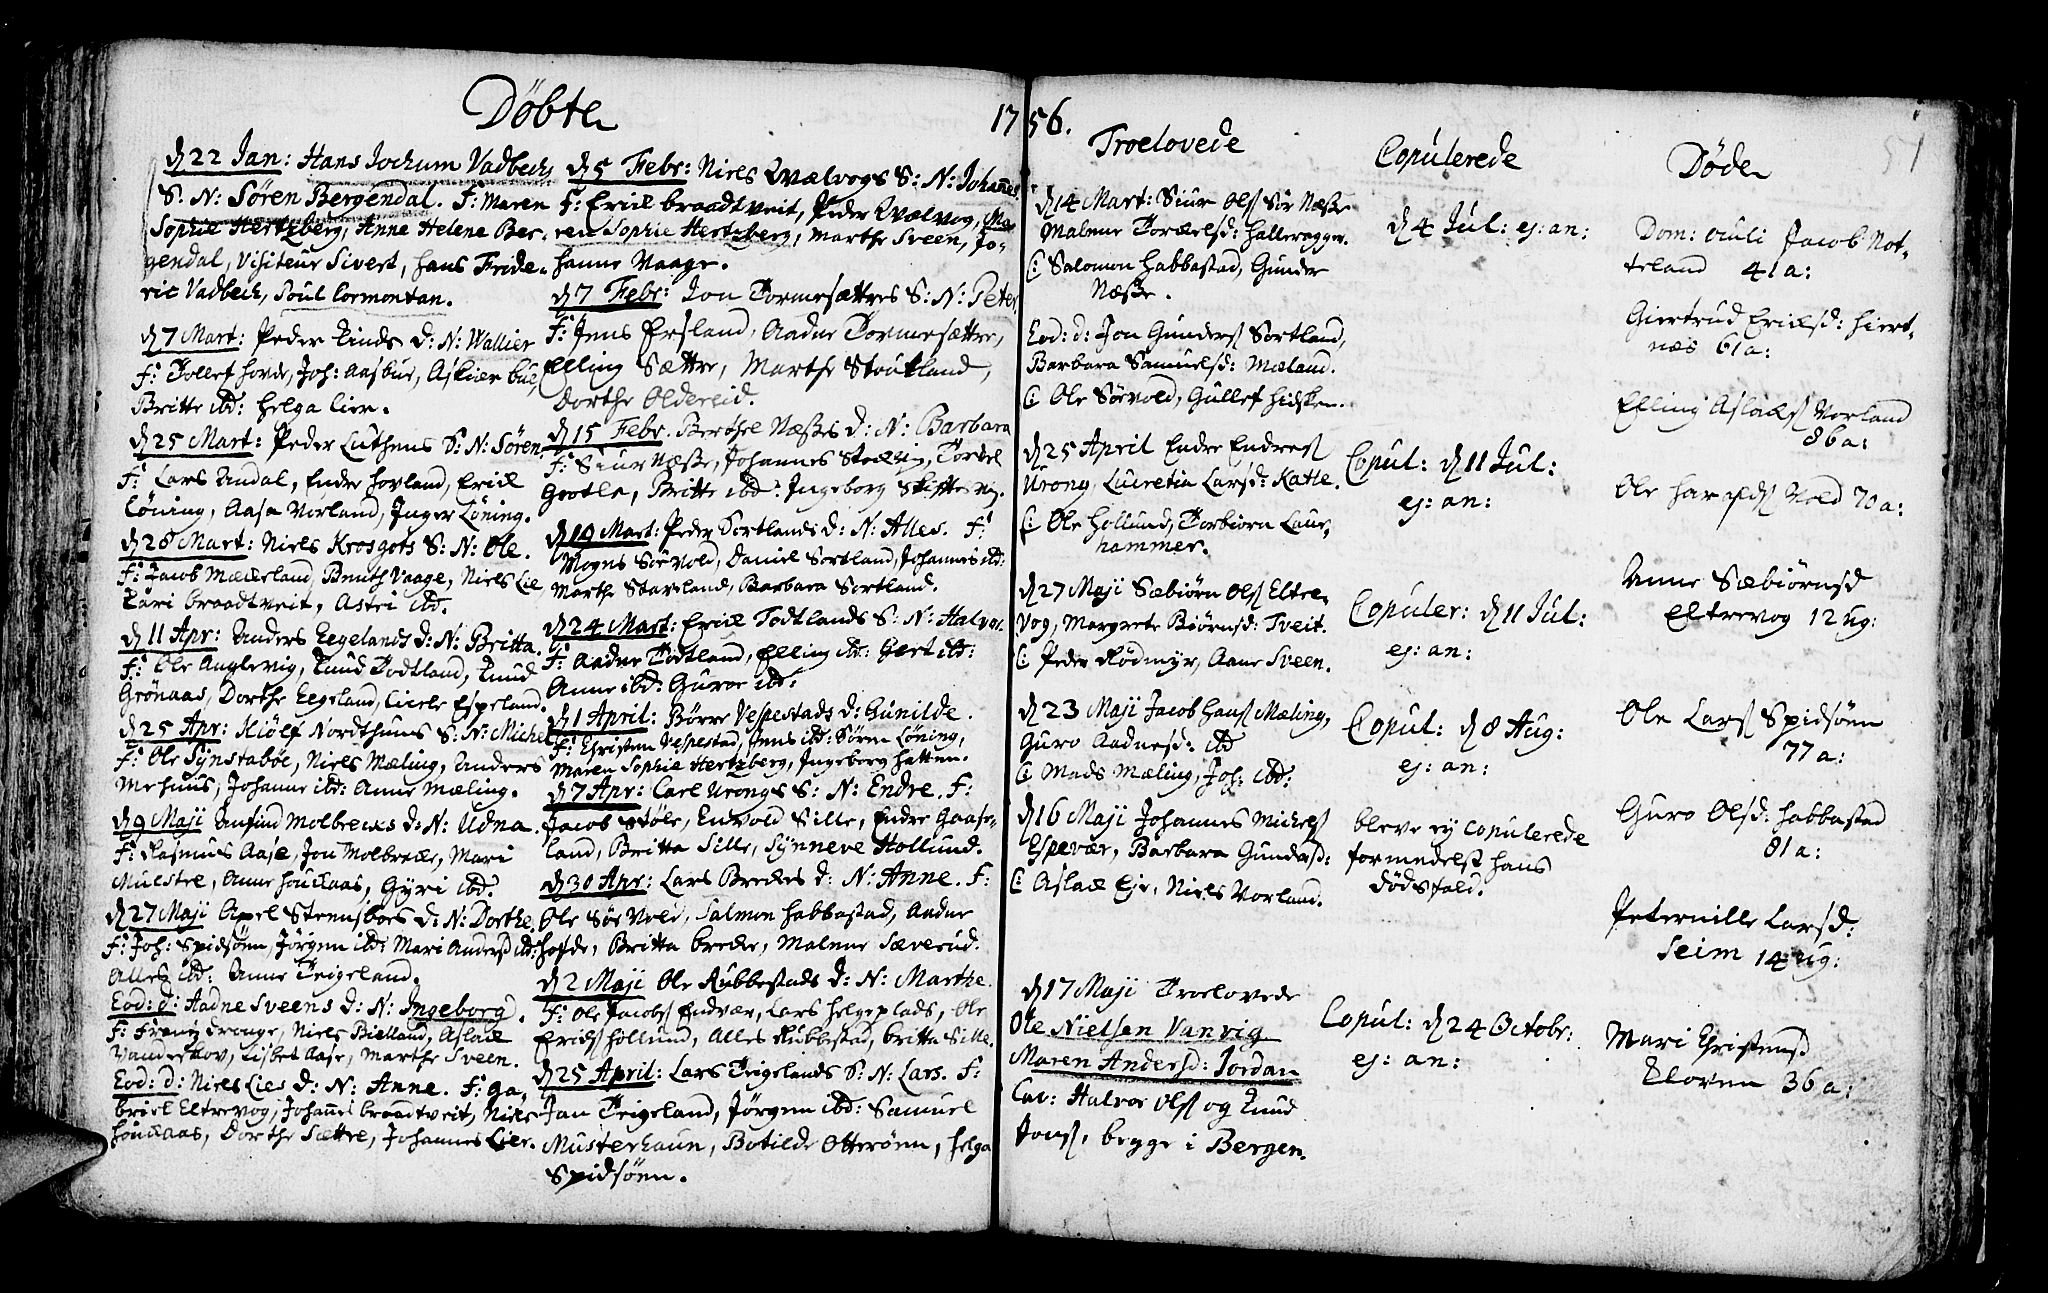 Döbte
1756.
d 22 Jan: Hans Jochum Vadbechs
S: N: Sören Bergendal. F: Maren
Sophie Hertzberg, Anne Helene Ber-
gendal, Visiteur Sivert, Hans Fride-
ric Vadbech, Poul Cormontan.
d 7 Mart: Peder Linds D: N: Wallier
F: Tollef Hovde, Joh: Aasbue, Askier bue,
Britte ibd: Helga Lier.
d 25 Mart: Peder Luthens S: N: Sören
F: Lars Undal, Endre Hovland, Erick
Löning, Aasa Vorland, Inger Löning.
d 28 Mart: Niels Krosgots S: N: Ole.
F: Jacob Mækerland, Knuth Vaage, Niels Lie
Kari braadtveit, Astri ibd.
d 11 Apr: Anders Eegelands D: N: Britta.
F: Ole Anglevig, Knud Todtland, Knud
Grönaas, Dorthe Eegeland, Cicele Espeland.
d 25 Apr: Kiölf Nordthuns S: N: Michel
F: Ole Synstaböe, Niels Mæling, Anders
Mehuus, Johanne ibd: Anne Mæling.
d 9 Maji Anfind Molbrekes D: N: Udna.
F: Rasmus Aase, Jon Molbreke, Mari
Mulstre, Anne Houckaas, Gyri ibd.
d 27 Maji Axel Steensboes D: N: Dorthe
F: Joh: Spidsöen, Jörgen ibd: Mari Andersd ibd:
Alles ibd: Anne Teigeland.
Eod: d: Aadne Sveens D: N: Ingeborg.
F: Frantz Tronge, Niels Bielland, Aslack
Vanderskov, Lisbet Aase, Marthe Sveen.
Eod: d: Niels Lies D: N: Anne. F: Ga-
briel Eltrevog, Johannes braadtveit, Niels
Houckaas, Dorthe Sættre, Johannes Lier.
d 5 Febr: Niels Qvalvogs S: N: Johannes
F: Erick braadtveit, Peder Qvalvog, Ma-
ren Sophie Hertzberg, Marthe Sveen, Jo-
hanne Vaage.
d 7 Febr: Jon Tormesættres S: N: Peter
F: Jens Ersland, Aadne Tormesættre,
Elling Sættre, Marthe Stoukland,
Dorthe Oldereid.
d 15 Febr. Berthel Næsses D: N: Barbara
F: Siur Næsse, Johannes Stockvig, Torkel
Grotle, Britte ibd: Ingeborg Skiftesvig.
d 19 Mart: Peder Sortlands D: N: Alles. F:
Mogns Sörvold, Daniel Sortland, Johannes ibd:
Marthe Stavland, Barbara Sortland.
d 24 Mart: Erick Todtlands S: N: Halvor
F: Aadne Todtland, Elling ibd: Gert ibd:
Anne ibd: Guroe ibd:
d 1 April: Börre Vespestads D: Gunilde.
F: Christen Vespestad, Jens ibd: Sören Löning,
Maren Sophie Hertzberg, Ingeborg Hatten.
d 7 Apr: Carl Urongs S: N: Endre. F:
Jacob Stöle, Envold Sille, Endre Gaase-
land, Britta Sille, Synneve Hollund.
d 30 Apr: Lars Brekes D: N: Anne. F:
Ole Sörvold, Salmon Habbastad, Aadne
Hofde, Britta breke, Malene Sæverud.
d 2 Maji Ole Rubbestads D: N: Marthe.
F: Ole Jacobs Endvær, Lars Helgeplads, Ole
Ericks Hollund, Alles Rubbestad, britta Sille.
d 25 April: Lars Teigelands S: N: Lars. F:
Jan Teigeland, Jörgen ibd: Samuel
Musterhaun, Botilde Otteröen, Helga
Spidsöen.
Troelovede
d 14 Mart: Siur Ols Sör Næsse
Malene Torkelsd: Halleragger.
C: Salomon Habbastad, Gunder
Næsse.
Eod: d: Jon Gunders Sortland,
Barbara Samuelsd: Mæland.
C: Ole Sörvold, Gullef Hidsken.
d 25 April Endre Endres
Urong, Lucretia Larsd: Katle.
C: Ole Hollund, Torbiörn Laur-
hammer.
d 27 Maji Sæbiörn Ols Eltre-
vog, Margrete Biörnsd: Tveit.
C: Peder Rödmyr, Aane Sveen.
d 23 Maji Jacob Hans Mæling,
Guro Aadnesd: ibd
C: Mads Mæling, Joh: ibd:
d 16 Maji Johannes Michels
Espevær, Barbara Gundersd:
C: Aslack Eje, Niels Vorland.
d 17 Maji Troelovede
Ole Nielsen Vanvig
Maren Andersd: Jordan
Cav: Halvor Ols og Knud
Jons, begge i Bergen.
Copulerede
d 4 Jul: ej: an:
Copul: d 11 Jul:
ej: an:
Copuler: d 11 Jul:
ej: an:
Copul: d 8 Aug:
ej: an:
bleve ej copulerede
formedelst hans
dödsfald.
Copul: d 24 Octobr:
ej: an:
51
Döde
Dom: oculi Jacob Not-
teland 41 a:
Giertrud Ericksd: Hiert-
næs 61 a:
Elling Aslacks Vorland
86 a:
Ole Haralds Vold 70 a:
Anne Sæbiörnsd
Eltrevog 12 ug:
Ole Lars Spidsöen
77 a:
Guro Olsd: Habbastad
81 a:
Peternille Larsd:
Seim 14 ug:
Mari Christensd
Kloven 36 a: